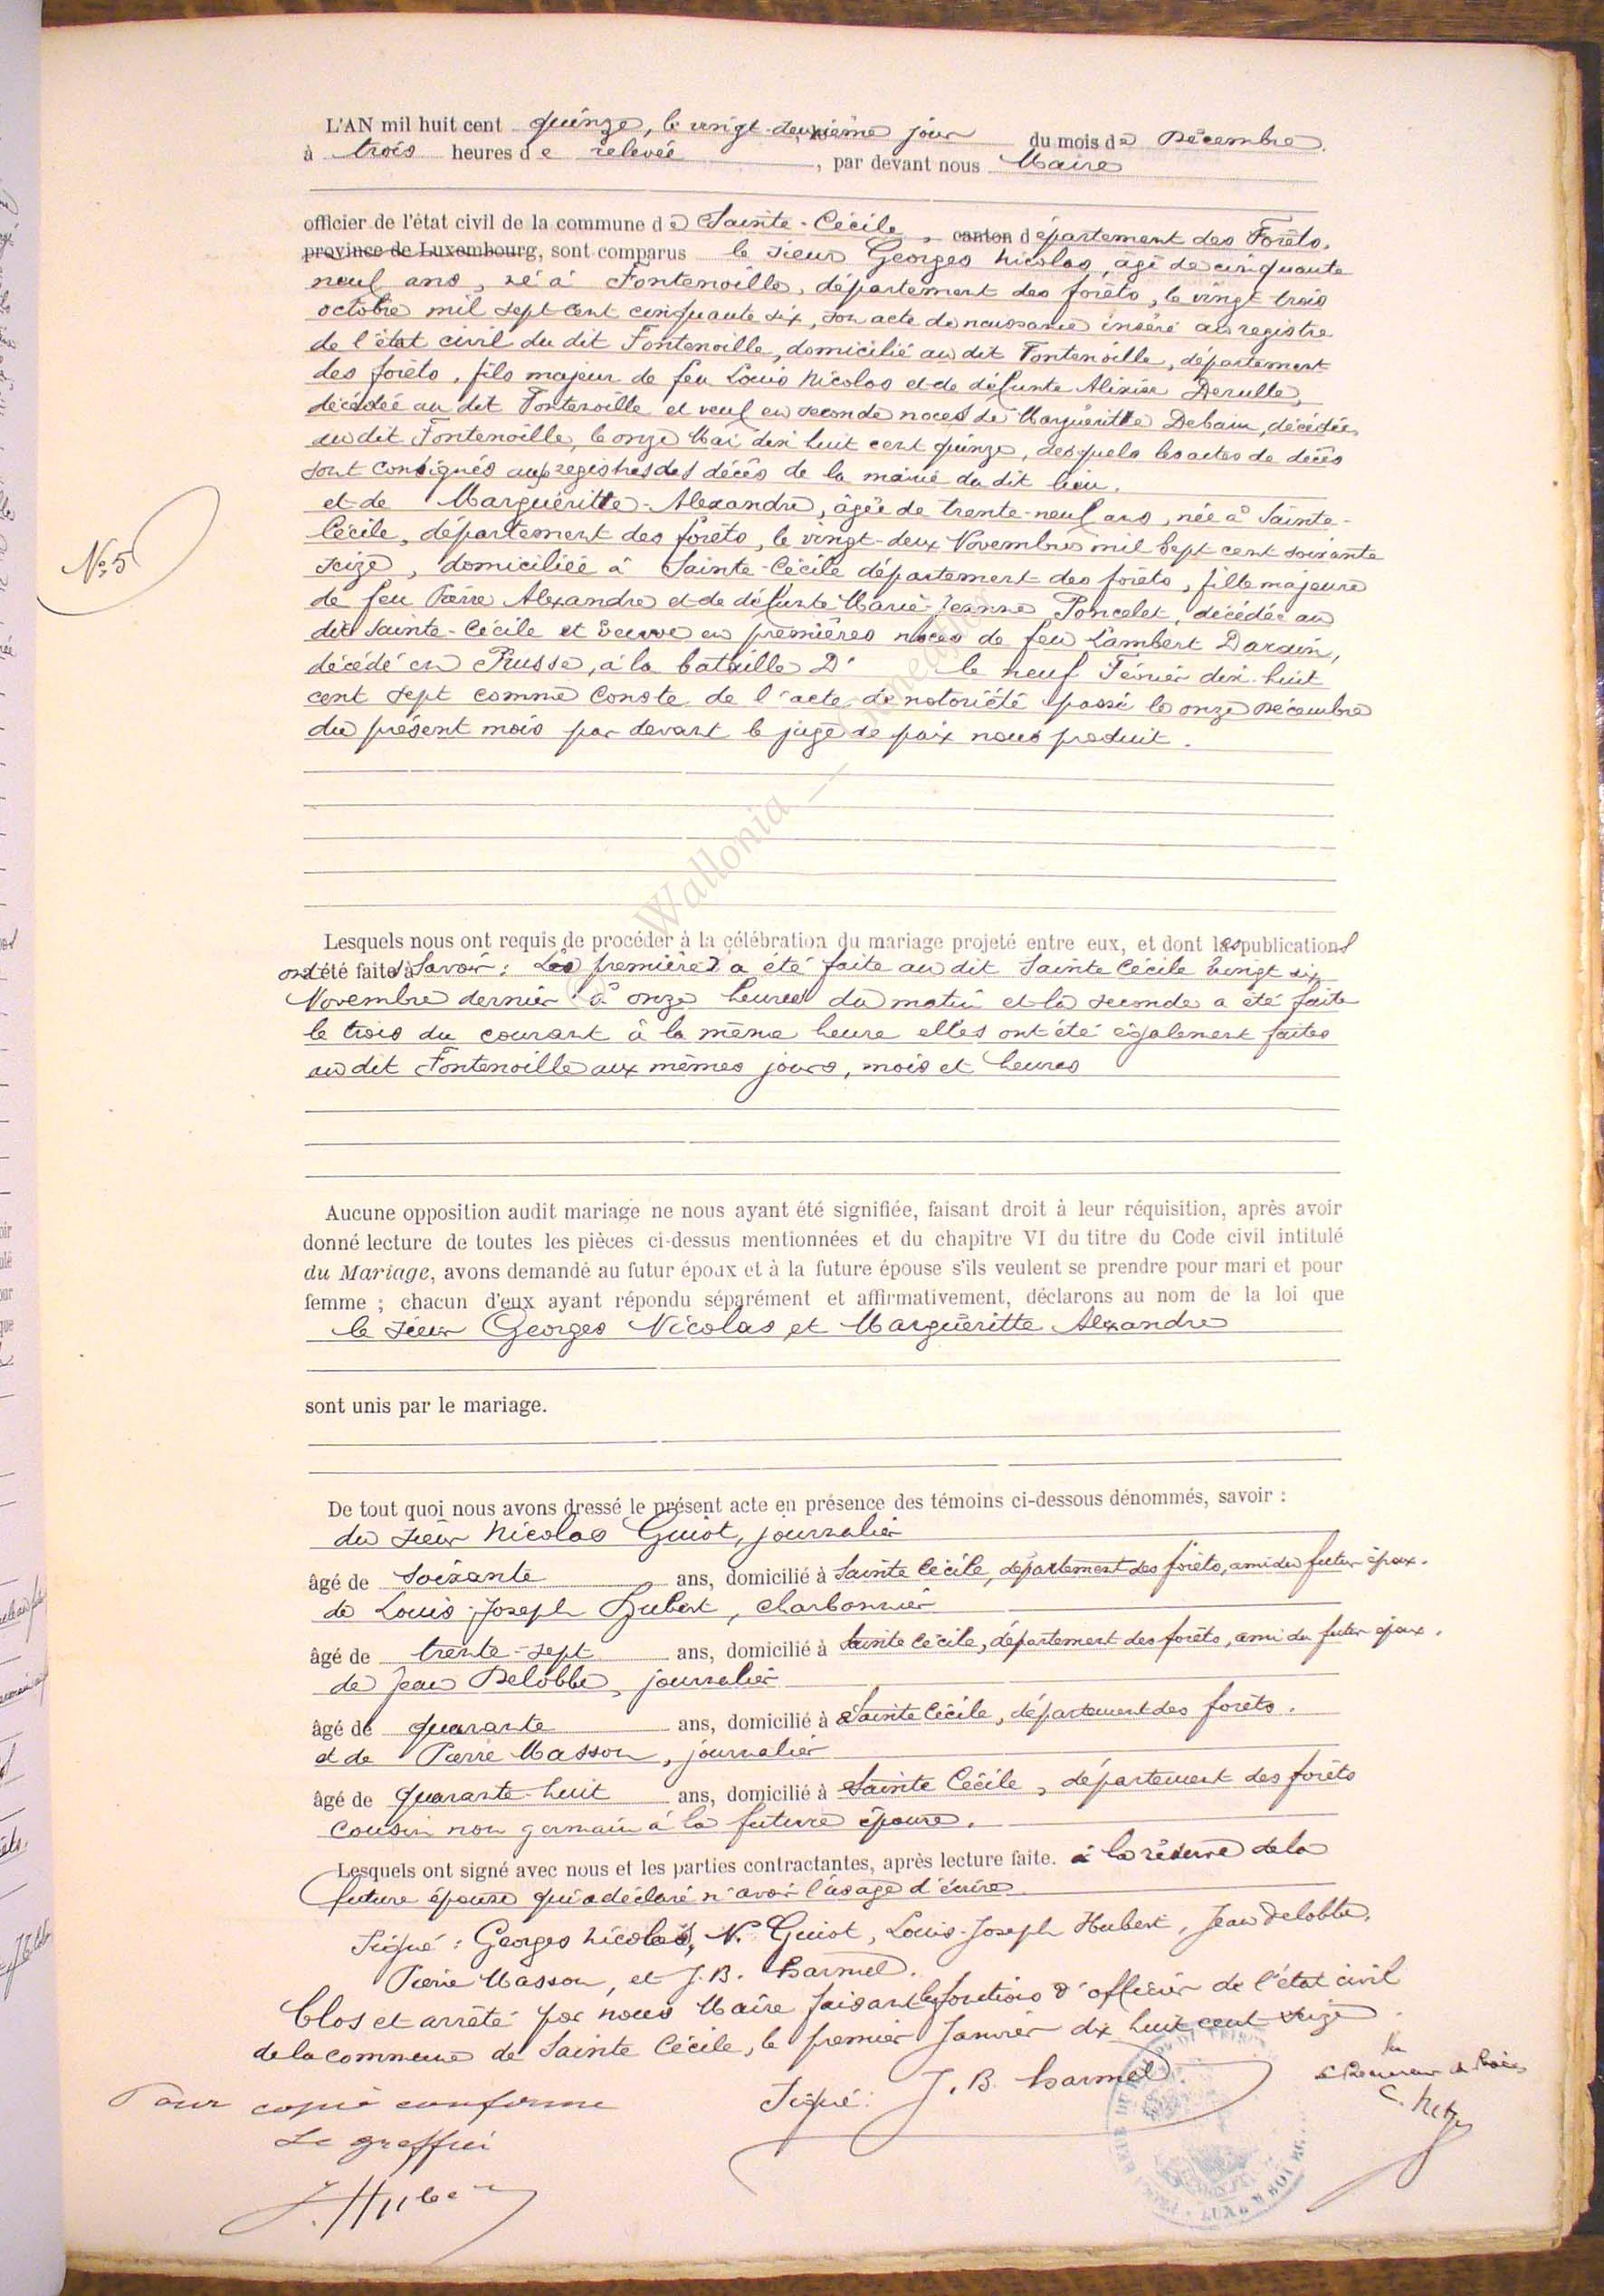 L'AN mil huit cent quinze, le vingt-deuxième jour du mois de Décembre.
à trois heures de relevée, par devant nous Maire
officier de l'état civil de la commune de Sainte-Cécile, canton département des Forêts,
province de Luxembourg, sont comparus le sieur Georges Nicolas, âgé de cinquante
neuf ans, né à Fontenoille, département des forêts, le vingt trois
octobre mil sept cent cinquante six, son acte de naissance inséré au registre
de l'état civil du dit Fontenoille, domicilié au dit Fontenoille, département
des forêts, fils majeur de feu Louis Nicolas et de défunte Derulle,
décédée au dit Fontenoille et veuf en seconde noces de Marguéritte Debain, décédée
au dit Fontenoille, le onze Mai dix huit cent quinze, desquels les actes de décès
sont consignés aux registres des décès de la mairie du dit lieu.
et de Marguéritte-Alexandre, âgée de trente-neuf ans, née à Sainte-
Cécile, département des forêts, le vingt-deux Novembre mil sept cent soixante
seize, domiciliée à Sainte-Cécile département des forêts, fille majeure
de feu Pierre Alexandre et de défunte Marie-Jeanne Poncelet, décédée au
dit Sainte-Cécile et veuve en premières noces de feu Lambert Darain,
décédé en Prusse, à la bataille D' le neuf Février dix-huit
cent sept comme conste de l'acte de notoriété passé le onze Décembre
du présent mois par devant le juge de paix nous produit.
Wallonia
N° 5
Lesquels nous ont requis de procéder à la célébration du mariage projeté entre eux, et dont les publications
ont été faites à savoir : La première a été faite au dit Sainte Cécile vingt six
Novembre dernier à onze heures du matin et la seconde a été faite
le trois du courant à la même heure elles ont été également faites
au dit Fontenoille aux mêmes jours, mois et heures
Aucune opposition audit mariage ne nous ayant été signifiée, faisant droit à leur réquisition, après avoir
donné lecture de toutes les pièces ci-dessus mentionnées et du chapitre VI du titre du Code civil intitulé
du Mariage, avons demandé au futur époux et à la future épouse s'ils veulent se prendre pour mari et pour
femme ; chacun d'eux ayant répondu séparément et affirmativement, déclarons au nom de la loi que
le sieur Georges Nicolas et Marguéritte Alexandre
sont unis par le mariage.
De tout quoi nous avons dressé le présent acte en présence des témoins ci-dessous dénommés, savoir :
du sieur Nicolas Guiot, journalier
âgé de soixante ans, domicilié à Sainte Cécile, département des forêts, ami du futur époux.
de Louis-Joseph Hubert, charbonnier
âgé de trente-sept ans, domicilié à Sainte Cécile, département des forêts, ami du futur époux.
de Jean Delobbe, journalier
âgé de quarante ans, domicilié à Sainte Cécile, département des forêts.
et de Pierre Masson, journalier
âgé de quarante-huit ans, domicilié à Sainte Cécile, département des forêts
cousin non germain à la future épouse.
Lesquels ont signé avec nous et les parties contractantes, après lecture faite. à la réserve de la
future épouse qui a déclaré n'avoir l'usage d'écrire
Signé : Georges Nicolas, N. Guiot, Louis-Joseph Hubert, Jean Delobbe,
Pierre Masson, et J. B. Harmel.
Clos et arrêté par nous Maire faisant les fonctions d'officier de l'état civil
de la commune de Sainte Cécile, le premier Janvier dix huit cent seize.
Signé : J. B. Harmel
Pour copie conforme
Le greffier